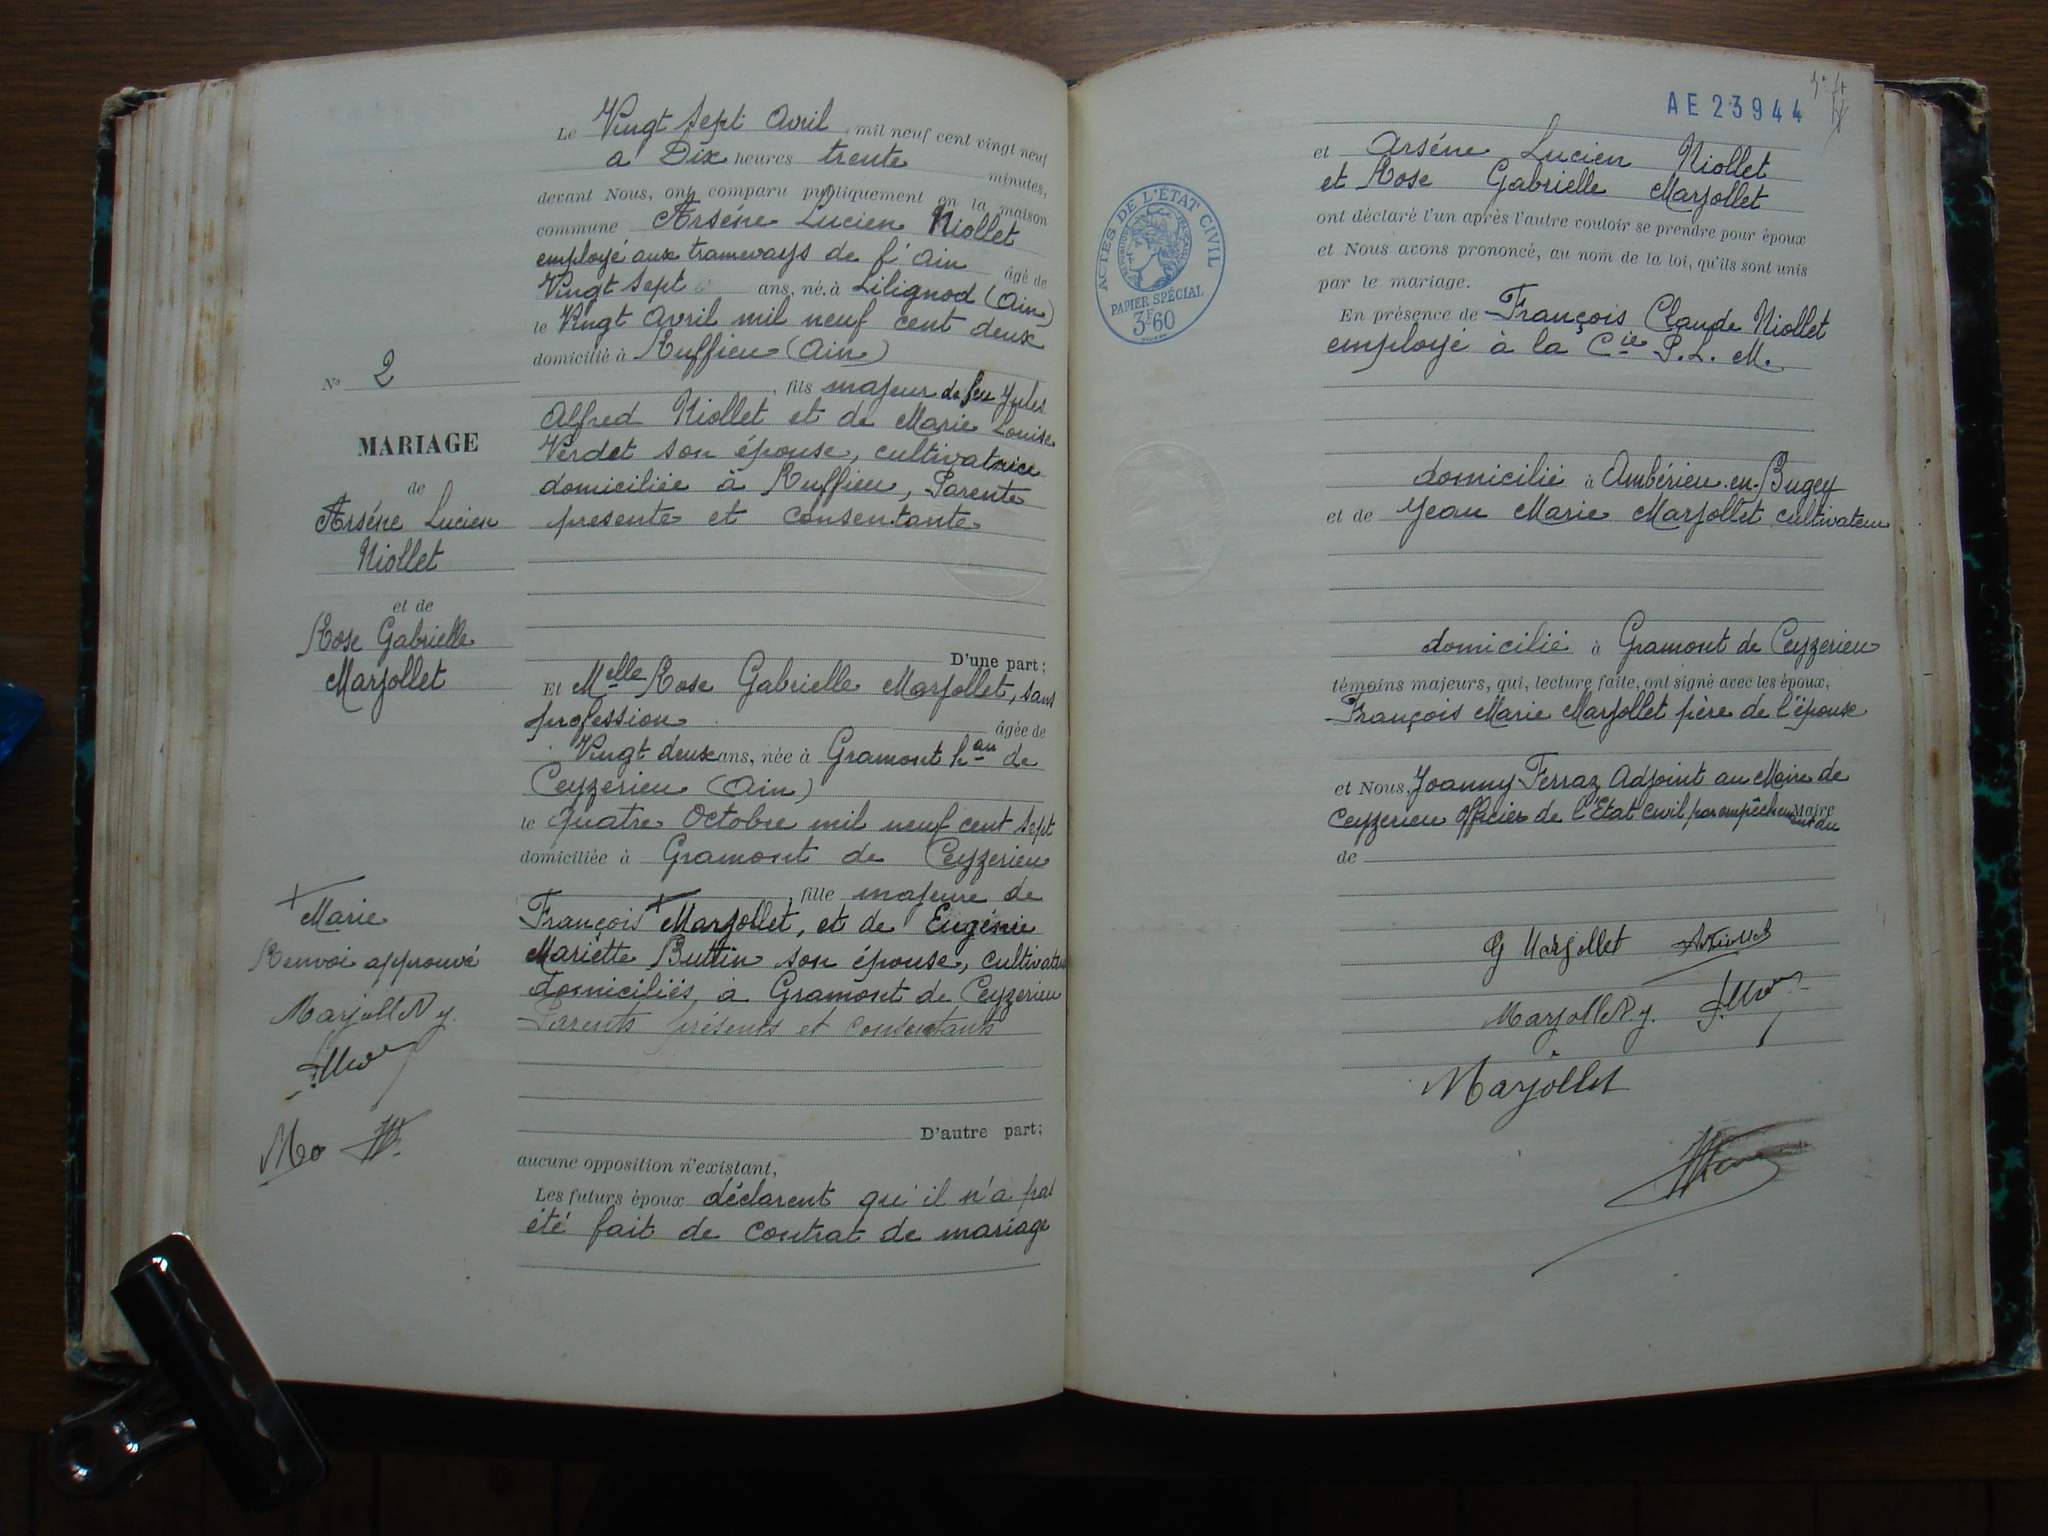 Le Vingt Sept Avril, mil neuf cent vingt neuf
a Dix heures trente minutes,
devant Nous, ont comparu publiquement en la maison
commune Arséne Lucien Niollet
employé aux tramways de l'ain âgé de
Vingt sept ans, né à Lilignod (Ain)
le Vingt Avril mil neuf cent deux
domicilié à Ruffieu (Ain)
, fils majeur de feu Jules
Alfred Niollet et de Marie Louise
Verdet son épouse, cultivatrice
domiciliée à Ruffieu, Parente
presente et consentante
D'une part :
Et Melle Rose Gabrielle Marjollet, sans
profession âgée de
Vingt deux ans, née à Gramont hau de
Ceyzerieu (Ain)
le quatre Octobre mil neuf cent sept
domiciliée à Gramont de Ceyzerieu
, fille majeure de
François + Marjollet, et de Eugénie
Mariette Buttin son épouse, cultivateurs
domiciliés a Gramont de Ceyzerieu
Parents présents et consentants
D'autre part ;
aucune opposition n'existant,
Les futurs époux déclarent qu'il n'a pas
été fait de contrat de mariage
No 2
MARIAGE
de
Arséne Lucien
Niollet
et de
Rose Gabrielle
Marjollet
+ Marie
Renvoi approuvé
Marjollet y.
AE 23944
ACTES DE L'ÉTAT CIVIL
PAPIER SPÉCIAL
3F60
et Arséne Lucien Niollet
et Rose Gabrielle Marjollet
ont déclaré l'un après l'autre vouloir se prendre pour époux
et Nous avons prononcé, au nom de la loi, qu'ils sont unis
par le mariage.
En présence de François Claude Niollet
employé à la Cie P. L. M.
domicilié à Ambérieu-en-Bugey
et de Jean Marie Marjollet cultivateur
domicilié à Gramont de Ceyzerieu
témoins majeurs, qui, lecture faite, ont signé avec les époux,
François Marie Marjollet père de l'épouse
et Nous, Joanny Ferraz Adjoint au Maire de
Ceyzerieu Officier de l'Etat Civil par empêchement du Maire
de
G Marjollet
Marjollet y.
Marjollet